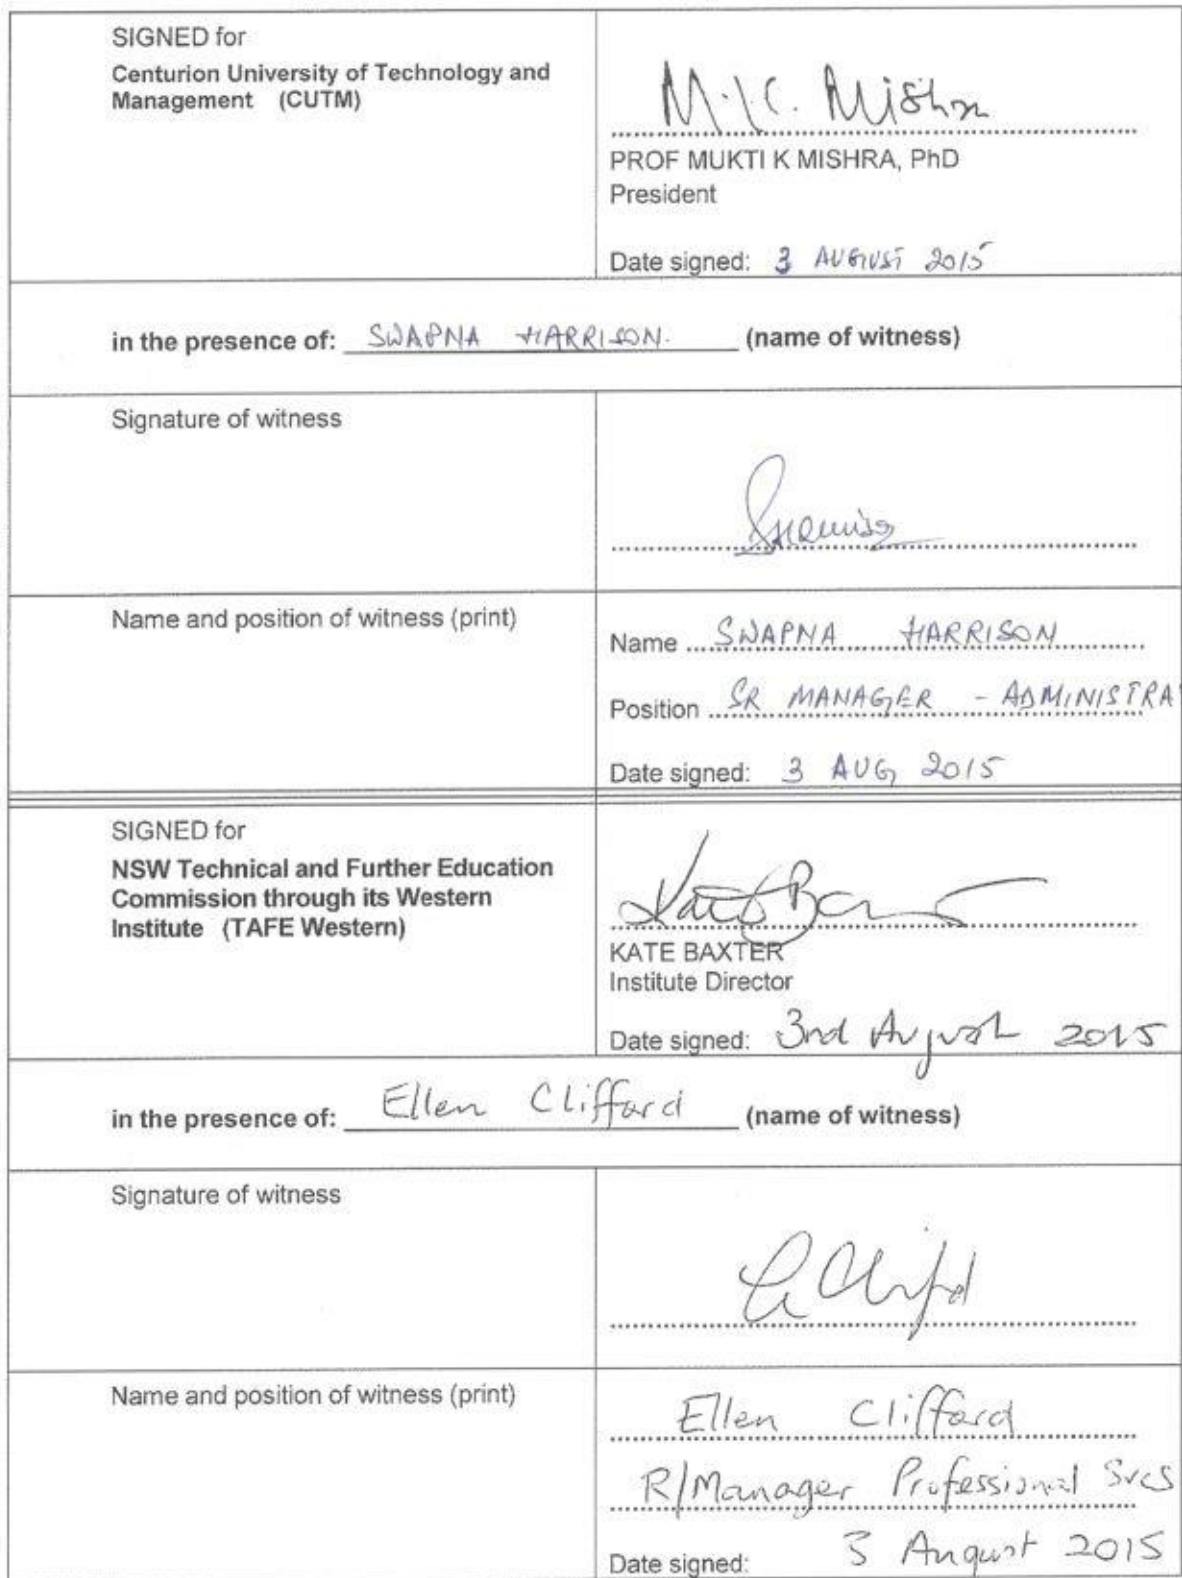 SIGNED for
Centurion University of Technology and
Management (CUTM)
M.K. Mishra
PROF MUKTI K MISHRA, PhD
President
Date signed: 3 AUGUST 2015
in the presence of: SWAPNA HARRISON. (name of witness)
Signature of witness
Name and position of witness (print)
Name SWAPNA HARRISON
Position SR MANAGER - ADMINISTRA
Date signed: 3 AUG, 2015
SIGNED for
NSW Technical and Further Education
Commission through its Western
Institute (TAFE Western)
KATE BAXTER
Institute Director
Date signed: 3rd August 2015
in the presence of: Ellen Clifford (name of witness)
Signature of witness
Name and position of witness (print)
Ellen Clifford
R/Manager Professional Svcs
Date signed: 3 August 2015